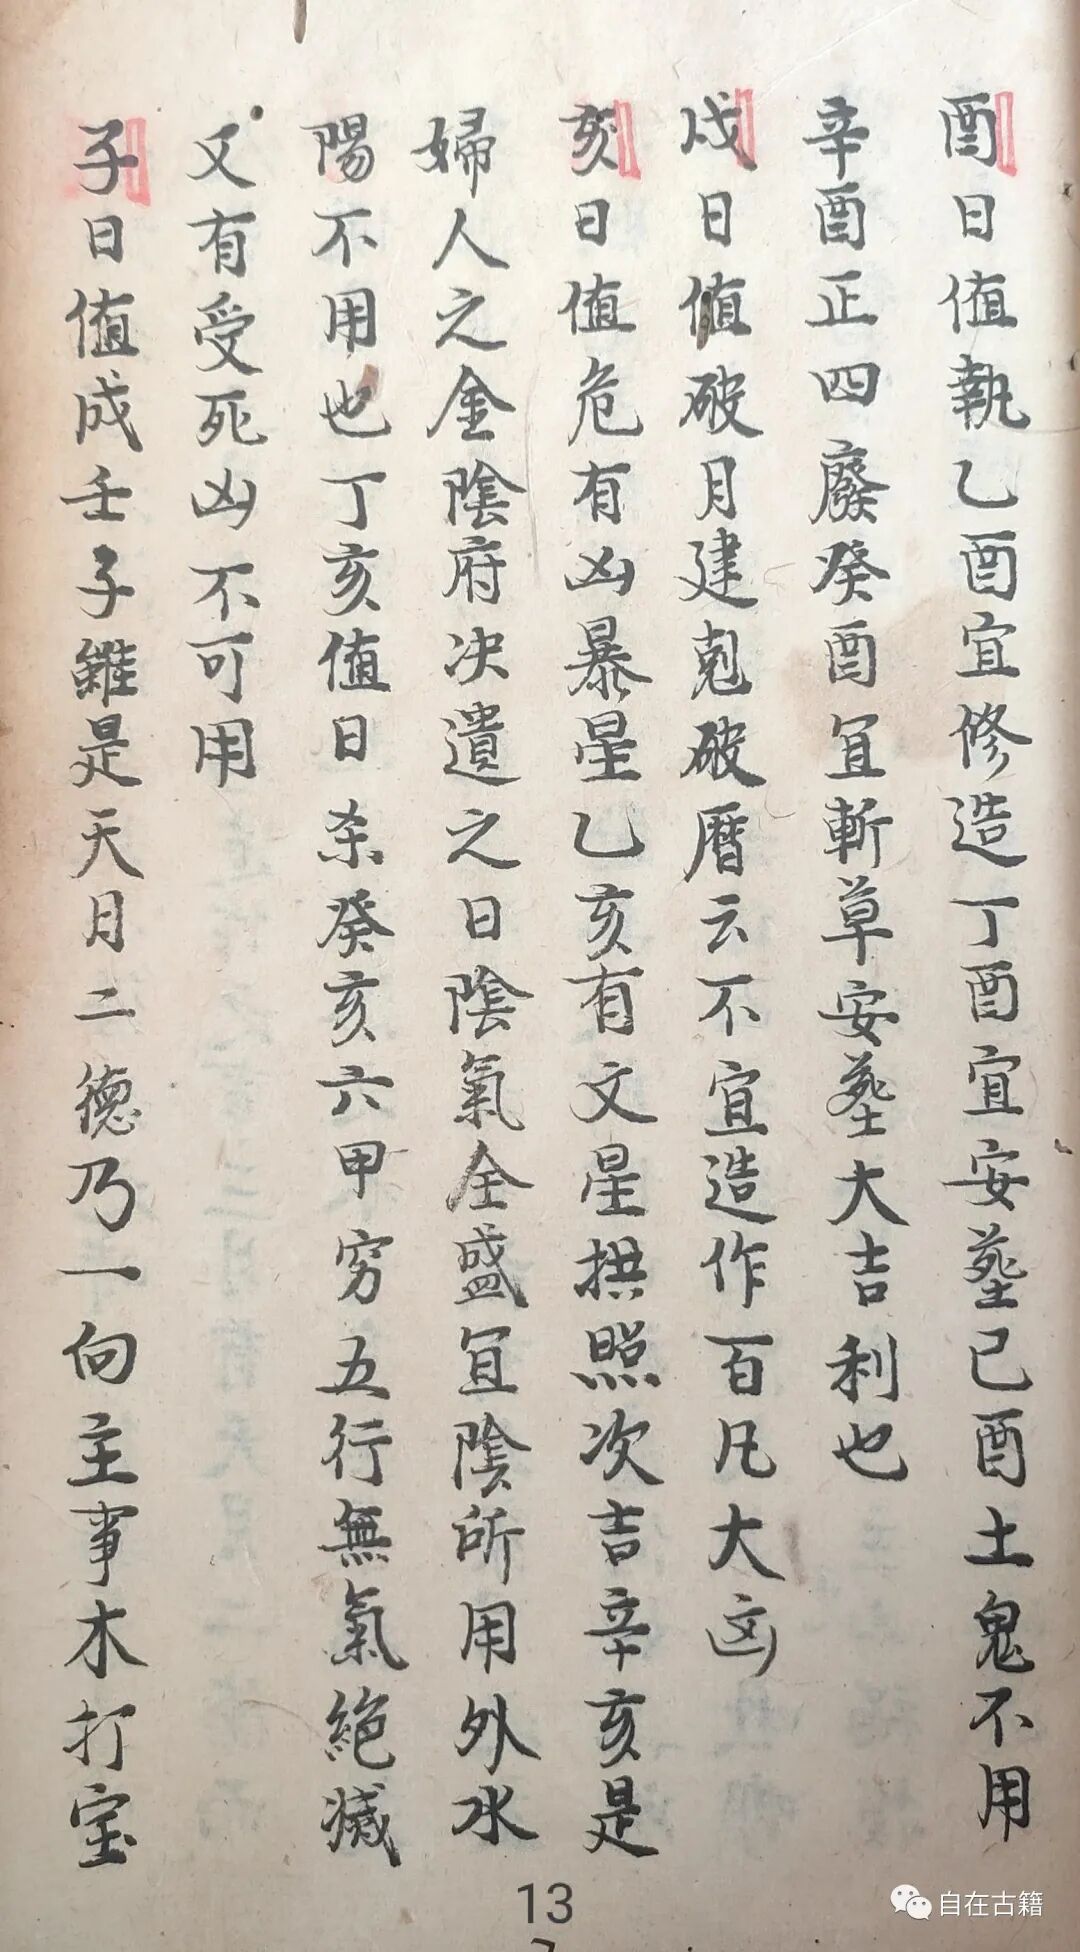 酉日值執乙酉宜修造丁酉宜安塟己酉土鬼不用
辛酉正四廢癸酉宜斬草安塟大吉利也
戌日值破月建剋破曆云不宜造作百凡大凶
亥日值危有凶暴星乙亥有文星拱照次吉辛亥是
婦人之金陰府决遣之日陰氣全盛宜陰所用外水
陽不用也丁亥值日杀癸亥六甲穷五行無氣絕滅
又有受死凶不可用
子日值成壬子雖是天月二德乃一向主事木打宝
13
自在古籍